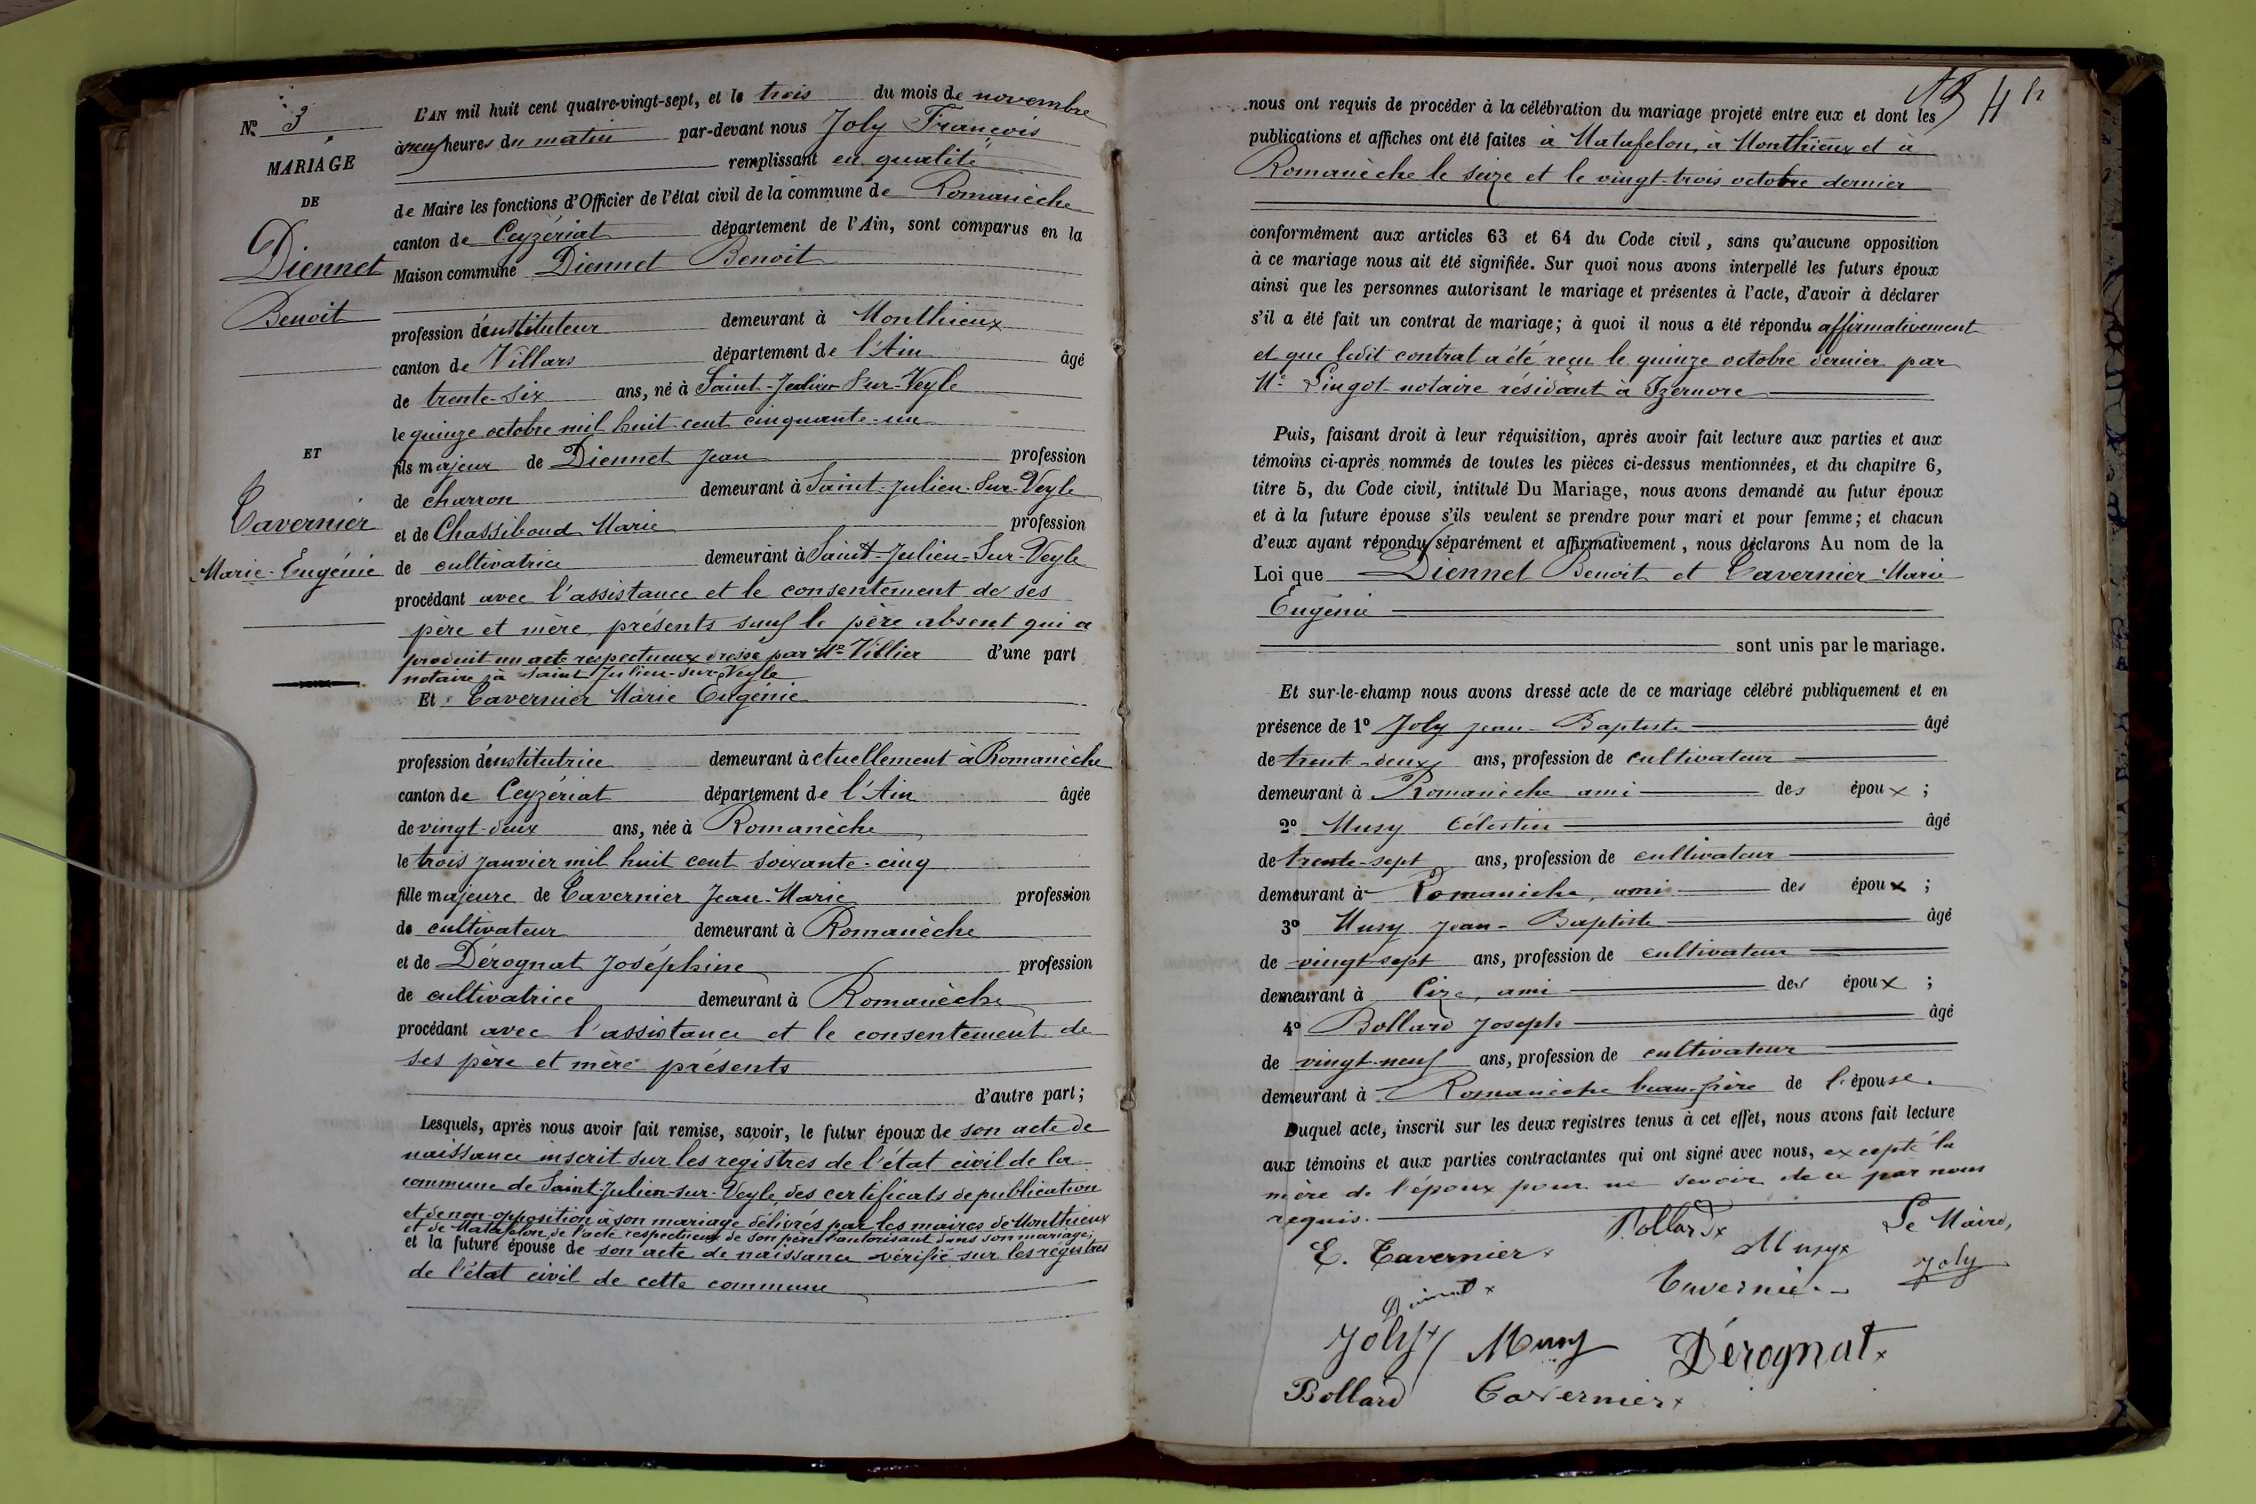 N° 3
MARIAGE
DE
Diennet
Benoit
ET
Tavernier
Marie-Eugénie
L'AN mil huit cent quatre-vingt-sept, et le trois du mois de novembre
à neuf heures du matin par-devant nous Joly François
remplissant en qualité
de Maire les fonctions d'Officier de l'état civil de la commune de Romanèche
canton de Ceyzériat département de l'Ain, sont comparus en la
Maison commune Diennet Benoit
profession d'instituteur demeurant à Monthieux
canton de Villars département de l'Ain âgé
de trente-six ans, né à Saint-Julien-Sur-Veyle
le quinze octobre mil huit cent cinquante-un
fils majeur de Diennet Jean profession
de charron demeurant à Saint-Julien-Sur-Veyle
et de Chassiboud Marie profession
de cultivatrice demeurant à Saint-Julien-Sur-Veyle
procédant avec l'assistance et le consentement de ses
père et mère, présents sauf le père absent qui a
produit un acte respectueux dressé par Me Villier d'une part
notaire à Saint Julien-sur-Veyle
Et Tavernier Marie Eugénie
profession d'institutrice demeurant actuellement à Romanèche
canton de Ceyzériat département de l'Ain âgée
de vingt-deux ans, née à Romanèche
le trois janvier mil huit cent soixante-cinq
fille majeure de Tavernier Jean-Marie profession
de cultivateur demeurant à Romanèche
et de Dérognat Joséphine profession
de cultivatrice demeurant à Romanèche
procédant avec l'assistance et le consentement de
ses père et mère présents
d'autre part;
Lesquels, après nous avoir fait remise, savoir, le futur époux de son acte de
naissance inscrit sur les registres de l'état civil de la
commune de Saint-Julien-sur-Veyle, des certificats de publication
et de non-opposition à son mariage délivrés par les maires de Monthieux
et de Matafelon, de l'acte respectueux de son père l'autorisant dans son mariage,
et la future épouse de son acte de naissance vérifié sur les régistres
de l'état civil de cette commune
nous ont requis de procéder à la célébration du mariage projeté entre eux et dont les
publications et affiches ont été faites à Matafelon, à Monthieux et à
Romanèche le seize et le vingt-trois octobre dernier
conformément aux articles 63 et 64 du Code civil, sans qu'aucune opposition
à ce mariage nous ait été signifiée. Sur quoi nous avons interpellé les futurs époux
ainsi que les personnes autorisant le mariage et présentes à l'acte, d'avoir à déclarer
s'il a été fait un contrat de mariage; à quoi il nous a été répondu affirmativement
et que ledit contrat a été reçu le quinze octobre dernier par
Me Pingot notaire résidant à Izernore
Puis, faisant droit à leur réquisition, après avoir fait lecture aux parties et aux
témoins ci-après nommés de toutes les pièces ci-dessus mentionnées, et du chapitre 6,
titre 5, du Code civil, intitulé Du Mariage, nous avons demandé au futur époux
et à la future épouse s'ils veulent se prendre pour mari et pour femme; et chacun
d'eux ayant répondu séparément et affirmativement, nous déclarons Au nom de la
Loi que Diennet Benoit et Tavernier Marie
Eugénie
sont unis par le mariage.
Et sur-le-champ nous avons dressé acte de ce mariage célébré publiquement et en
présence de 1° Joly Jean-Baptiste âgé
de trent-deux ans, profession de cultivateur
demeurant à Romanèche ami des époux;
2° Musy Célestin âgé
de trente-sept ans, profession de cultivateur
demeurant à Romanèche, ami des époux;
3° Musy Jean-Baptiste âgé
de vingt-sept ans, profession de cultivateur
demeurant à Cize, ami des époux;
4° Bollard Joseph âgé
de vingt-neuf ans, profession de cultivateur
demeurant à Romanèche beau-frère de l'épouse.
Duquel acte, inscrit sur les deux registres tenus à cet effet, nous avons fait lecture
aux témoins et aux parties contractantes qui ont signé avec nous, excepté la
mère de l'époux pour ne savoir de ce par nous
requis.
E. Tavernier Bollard Musy Le Maire,
Tavernier Joly
Joly Musy Dérognat
Bollard Tavernier